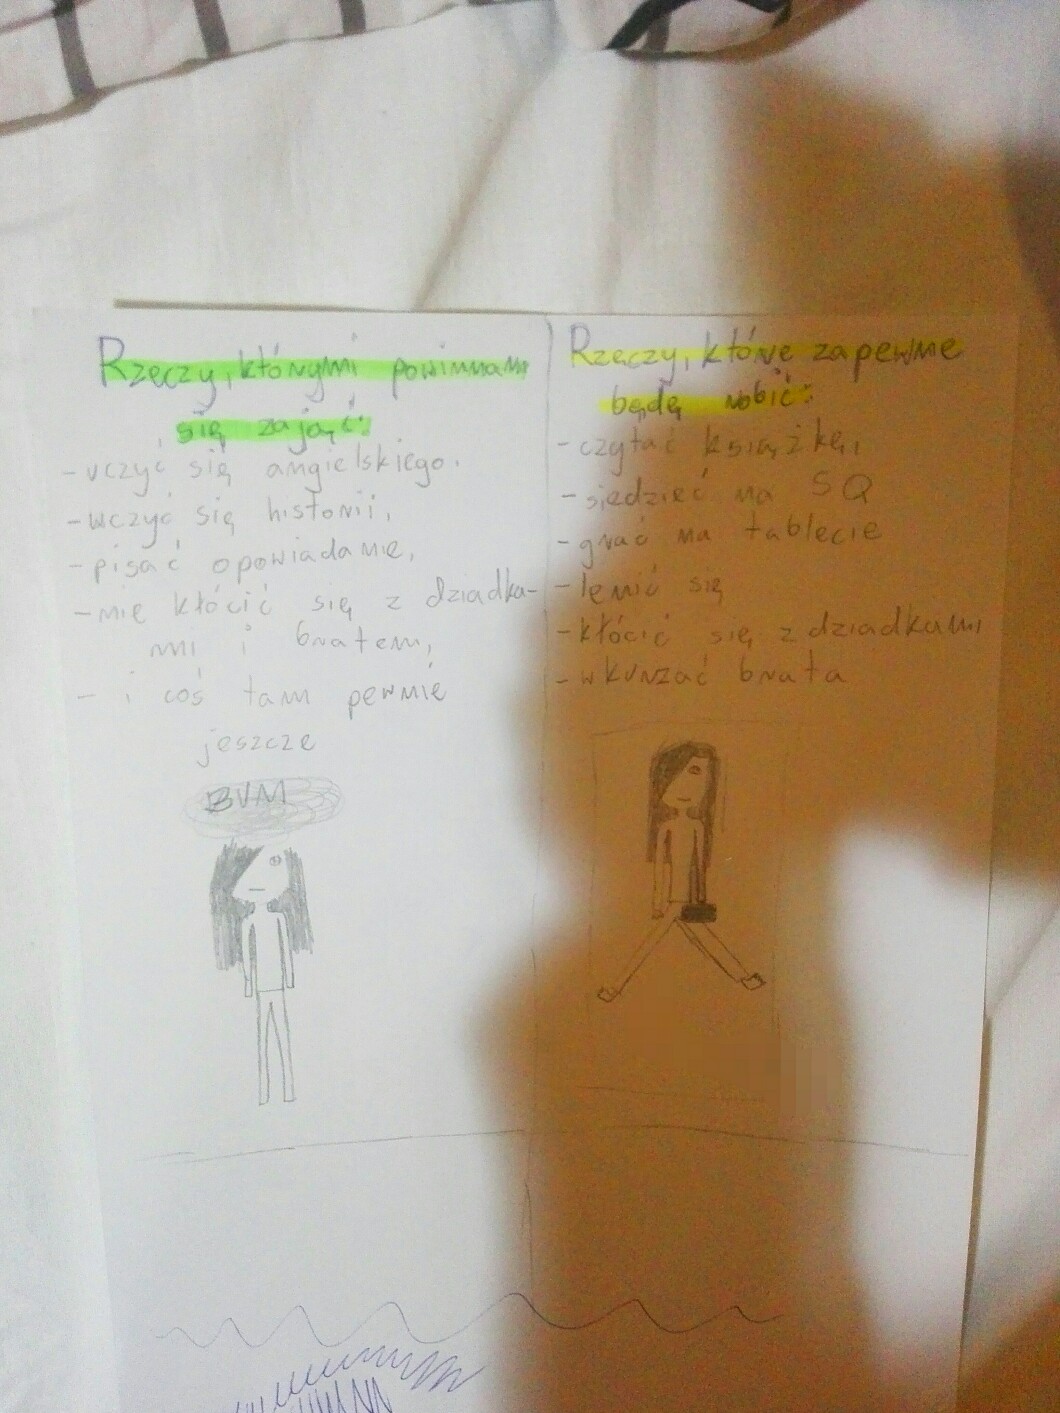 Rzeczy, którymi powinnam
się zająć:
- uczyć się angielskiego.
- uczyć się historii,
- pisać opowiadanie,
- nie kłócić się z dziadka-
mi i bratem,
- i coś tam pewnie
jeszcze
BUM
Rzeczy, które zapewne
będę robić:
- czytać książkę,
- siedzieć na SQ
- grać na tablecie
- lenić się
- kłócić się z dziadkami
- wkurzać brata